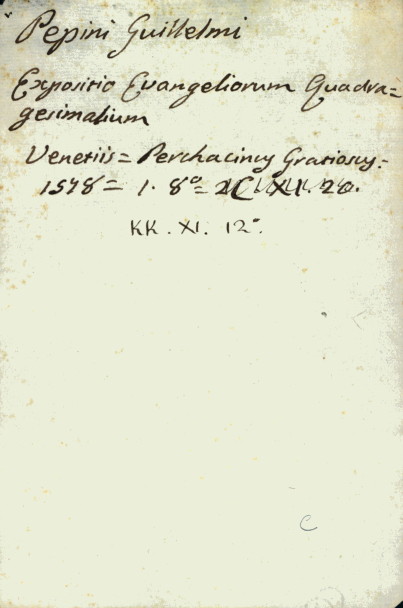 Pepini Guillelmi
Expositio Evangeliorum Quadra=
gesimalium
Venetiis = Perchacinus Gratiosus =
1578 = 1. 8º = XI. 20.
KK. XI. 12º.
C